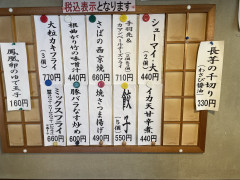 税込表示となります。
長芋の千切り
(わさび醤油)
330円
シューマイ大
440円
710円
さばの西京焼
660円
根曲がり竹の味噌汁
440円
大粒カキフライ
(5個)
770円
イカ天甘辛煮
440円
餃子
(5個)
550円
焼さつま揚げ
490円
豚バラなす炒め
600円
ミックスフライ
660円
鳳凰卵のゆで玉子
160円